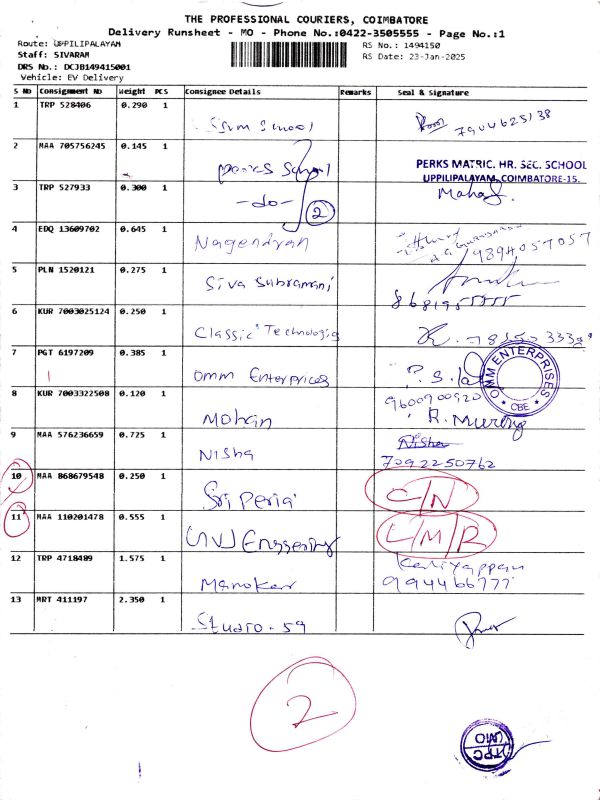 THE PROFESSIONAL COURIERS, COIMBATORE
Delivery Runsheet - MO - Phone No.:0422-3505555 - Page No.:1
Route: UPPILIPALAYAM RS No.: 1494150
Staff: SIVARAM RS Date: 23-Jan-2025
DRS No.: DCJB149415001
Vehicle: EV Delivery
S No Consignment No Weight PCS Consignee Details Remarks Seal & Signature
1 TRP 528406 0.290 1 School 7904625138
2 MAA 705756245 0.145 1 Perks School PERKS MATRIC. HR. SEC. SCHOOL
UPPILIPALAYAM, COIMBATORE-15.
3 TRP 527933 0.300 1 -do- 2
4 EDQ 13609702 0.645 1 Nagendran 9894057057
5 PLN 1520121 0.275 1 Siva Subramani
6 KUR 7003025124 0.250 1 Classic Technologis
7 PGT 6197209 0.385 1 Omm Enterprices OMM ENTERPRISES * CBE *
8 KUR 7003322508 0.120 1 Mohan 9600900920
9 MAA 576236659 0.725 1 Nisha Nisha
7092250762
10 MAA 868679548 0.250 1 Sri Peria C/N
11 MAA 110201478 0.555 1 L/M/R
12 TRP 4718489 1.575 1 Manoker Kaliyappan
994466777
13 MRT 411197 2.350 1 Studio-59
2
TPC